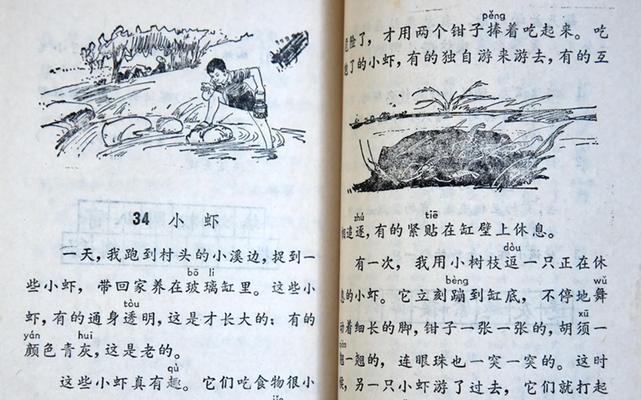 34 小 虾
一天，我跑到村头的小溪边，捉到一
bō li
些小虾，带回家养在玻璃缸里。这些小
tòu
虾，有的通身透明，这是才长大的；有的
yán huī
颜色青灰，这是老的。
qù
这些小虾真有趣。它们吃食物很小
pěng
险了，才用两个钳子捧着吃起来。吃
了的小虾，有的独自游来游去，有的互
zhú tiē
追逐，有的紧贴在缸壁上休息。
dòu
有一次，我用小树枝逗一只正在休
bèng wǔ
的小虾。它立刻蹦到缸底，不停地舞
xū
着细长的脚，钳子一张一张的，胡须一
一翘的，连眼珠也一突一突的。这时
，另一只小虾游了过去，它们就打起